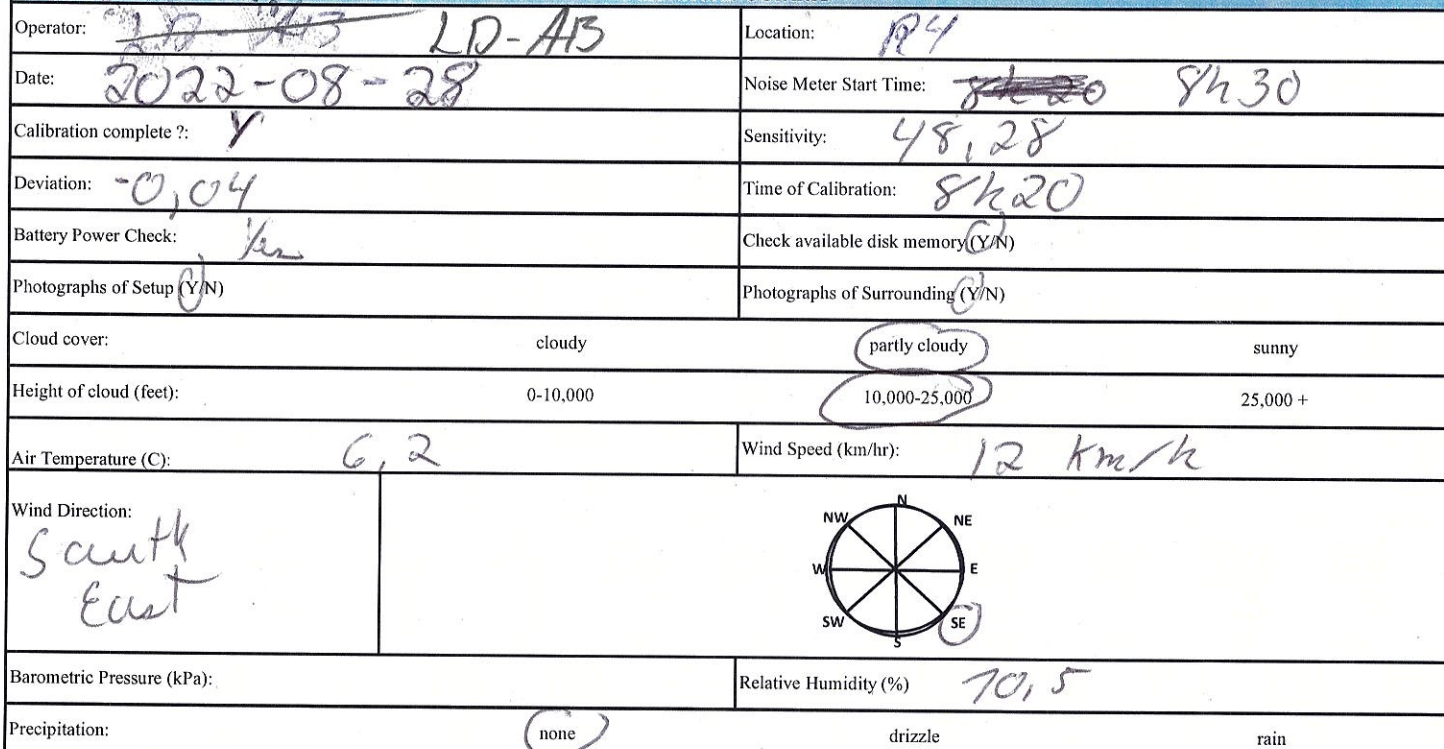 Operator: LD-AB Location: R4
Date: 2022-08-28 Noise Meter Start Time: 8h20 8h30
Calibration complete ?: Y Sensitivity: 48,28
Deviation: -0,04 Time of Calibration: 8h20
Battery Power Check: Yes Check available disk memory (Y/N)
Photographs of Setup (Y/N) Photographs of Surrounding (Y/N)
Cloud cover: cloudy partly cloudy sunny
Height of cloud (feet): 0-10,000 10,000-25,000 25,000 +
Air Temperature (C): 6,2 Wind Speed (km/hr): 12 km/h
Wind Direction:
South
East
N
NW NE
W E
SW SE
S
Barometric Pressure (kPa): Relative Humidity (%) 70,5
Precipitation: none drizzle rain